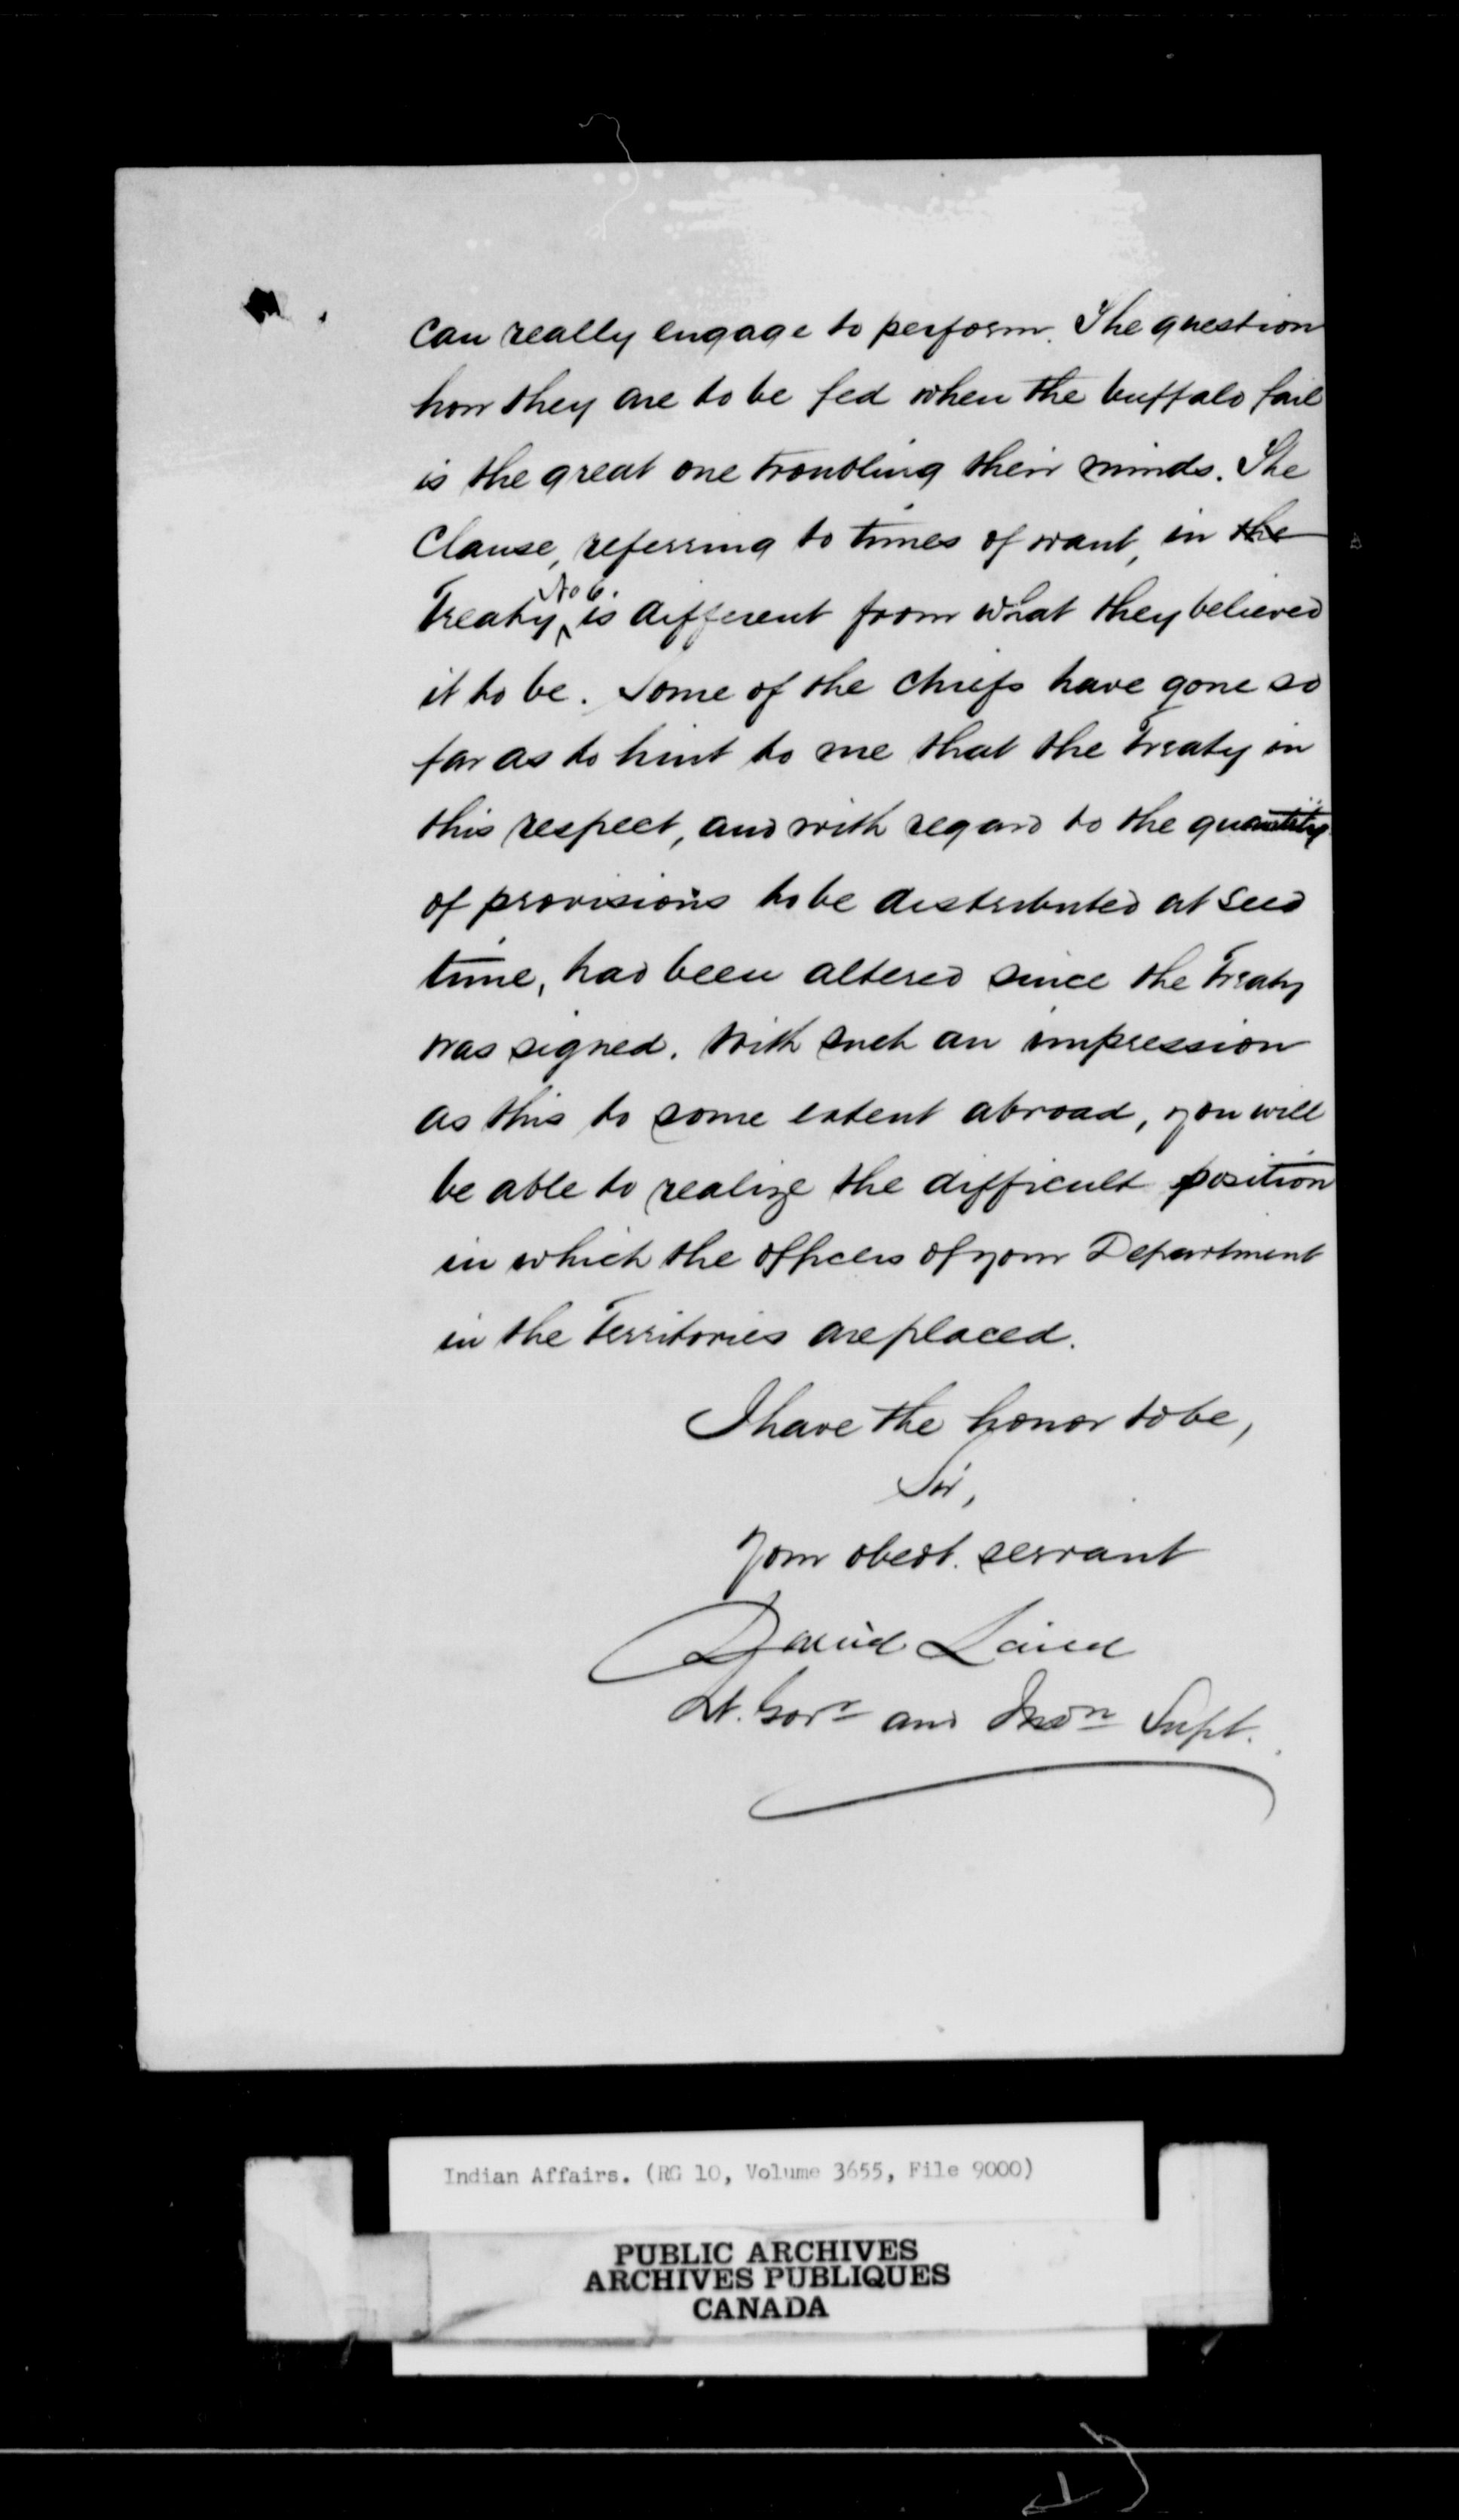 can really engage to perform. The question
how they are to be fed when the buffalo fail
is the great one troubling their minds. The
Clause, referring to times of want, in the
No 6.
Treaty is different from what they believed
it to be. Some of the Chiefs have gone so
far as to hint to me that the Treaty in
this respect, and with regard to the quantity
of provisions to be distributed at seed
time, had been altered since the Treaty
was signed. With such an impression
as this to some extent abroad, you will
be able to realize the difficult position
in which the officers of your Department
in the Territories are placed.
I have the honor to be,
Sir,
Your obedt. servant
David Laird
Lt. Govr and Indn Supt.
Indian Affairs. (RG 10, Volume 3655, File 9000)
PUBLIC ARCHIVES
ARCHIVES PUBLIQUES
CANADA